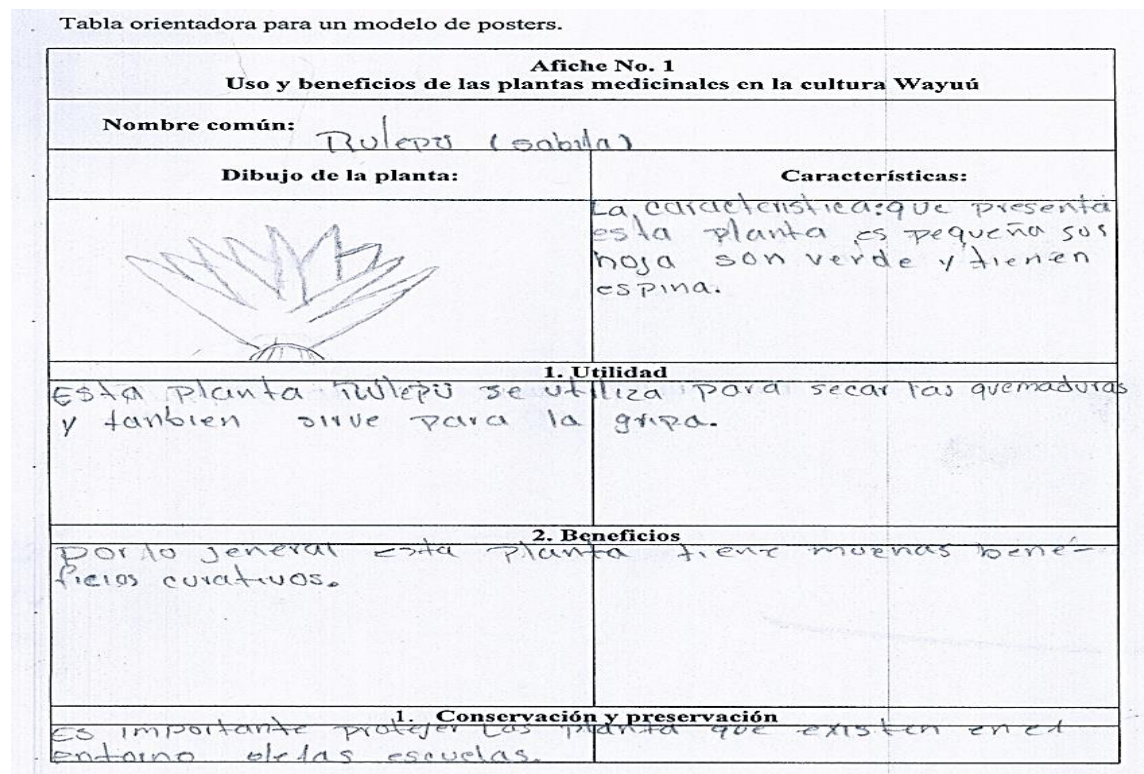 Tabla orientadora para un modelo de posters.
Afiche No. 1
Uso y beneficios de las plantas medicinales en la cultura Wayuú
Nombre común: (sabila)
Dibujo de la planta:
Características:
La caracteristica:que presenta
esta planta es pequeña sus
hoja son verde y tienen
espina.
1. Utilidad
Esta planta se utiliza para secar las quemaduras
y tanbien sirve para la gripa.
2. Beneficios
Por lo jeneral esta planta tiene muchas bene-
ficios curativos.
1. Conservación y preservación
Es importante protejer los planta que existen en el
entorno de las escuelas.